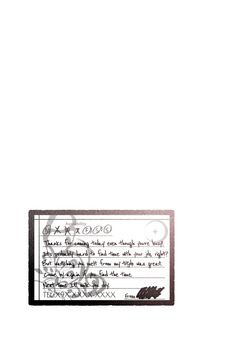 Thanks for coming today even though you're busy!
It's probably hard to find time with your job, right?
But watching you melt from my style was great.
Come by again if you find the time.
Next time I'll
TEL X9X-XXXX-XXXX
from